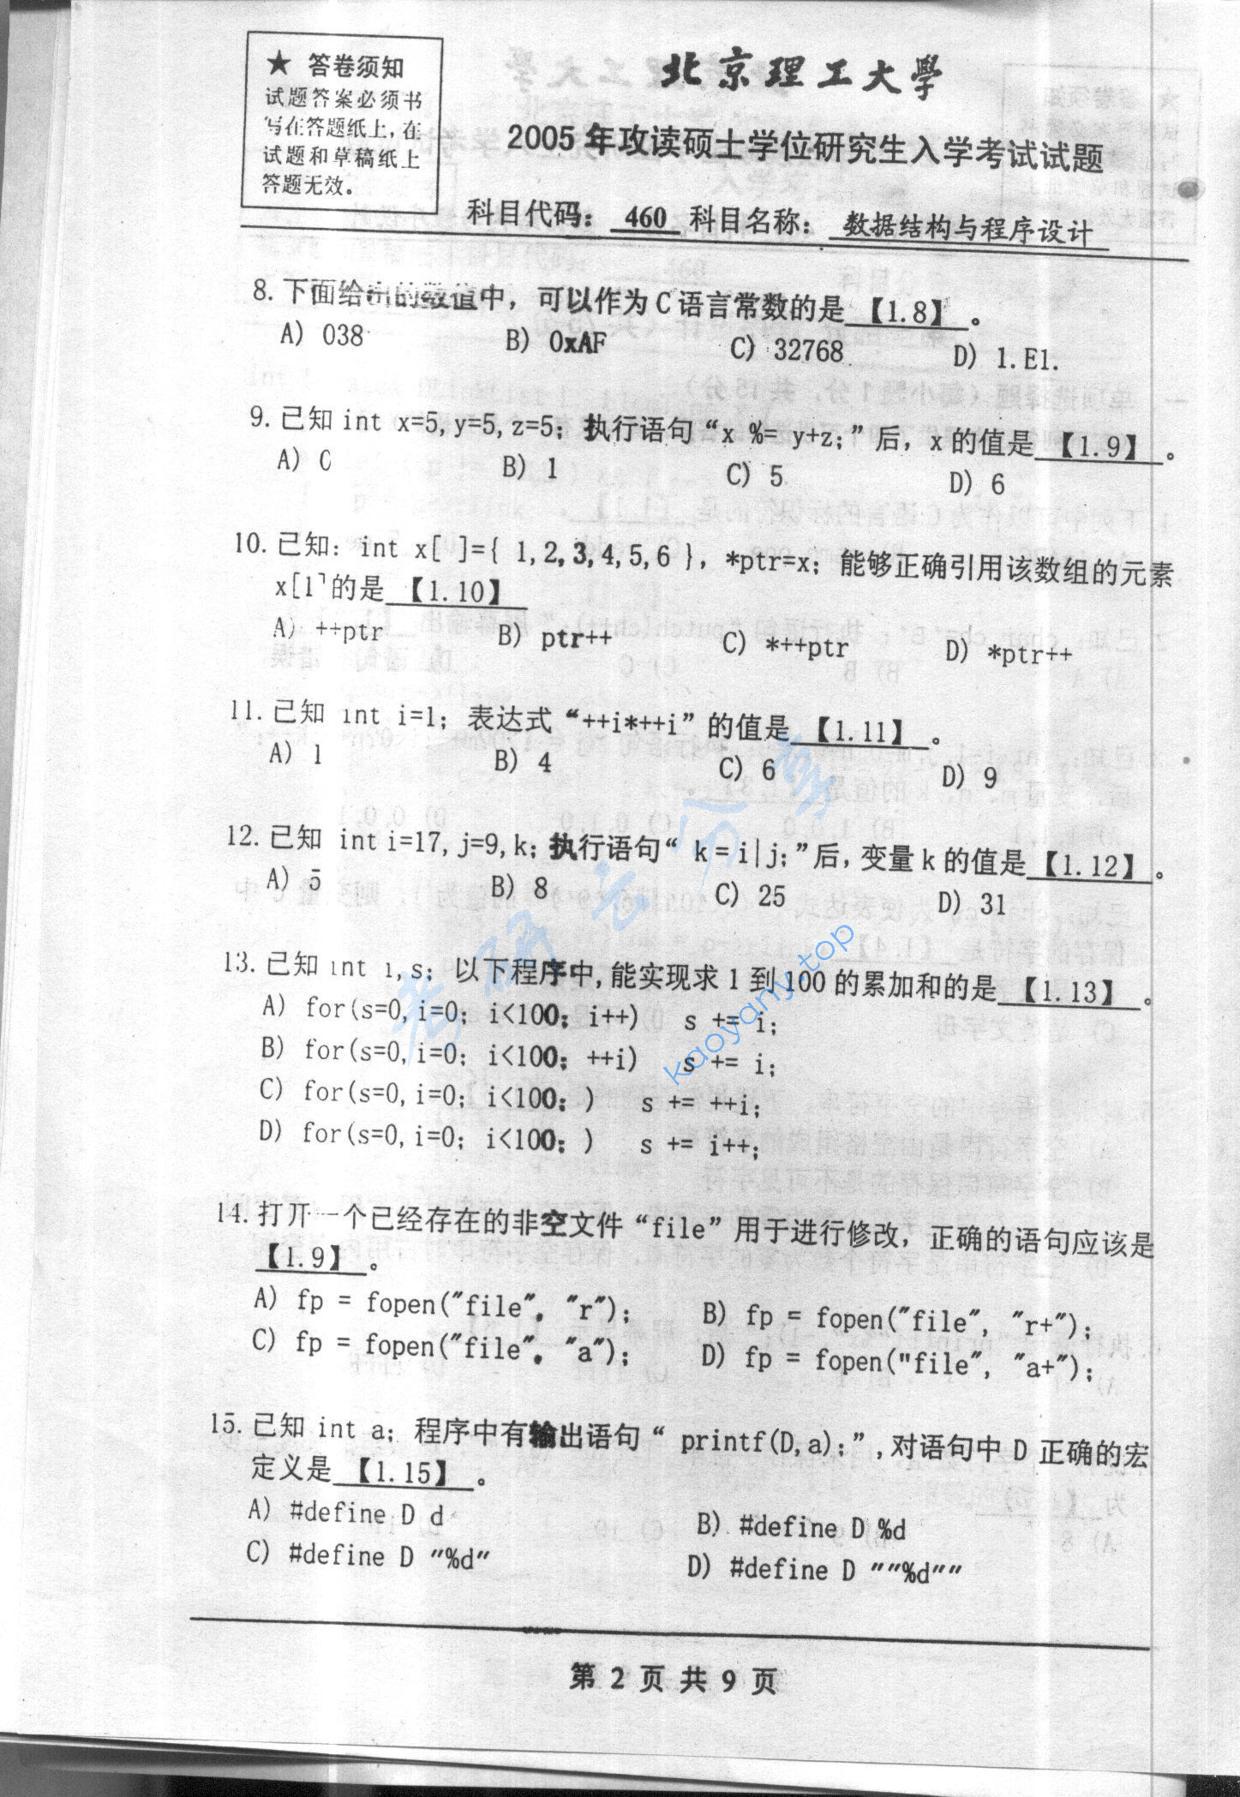 ★ 答卷须知
试题答案必须书
写在答题纸上，在
试题和草稿纸上
答题无效。
北京理工大学
2005年攻读硕士学位研究生入学考试试题
科目代码： 460 科目名称： 数据结构与程序设计
8. 下面给出的数值中，可以作为C语言常数的是 【1.8】 。
A) 038 B) 0xAF C) 32768 D) 1.E1.
9. 已知 int x=5, y=5, z=5; 执行语句“x %= y+z;”后，x 的值是 【1.9】 。
A) 0 B) 1 C) 5 D) 6
10. 已知：int x[ ]={ 1,2,3,4,5,6 }，*ptr=x; 能够正确引用该数组的元素
x[1]的是 【1.10】
A) ++ptr B) ptr++ C) *++ptr D) *ptr++
11. 已知 int i=1; 表达式“++i*++i”的值是 【1.11】 。
A) 1 B) 4 C) 6 D) 9
12. 已知 int i=17, j=9, k; 执行语句“ k = i|j;”后，变量 k 的值是 【1.12】 。
A) 5 B) 8 C) 25 D) 31
13. 已知 int i,s; 以下程序中,能实现求 1 到 100 的累加和的是 【1.13】 。
A) for(s=0,i=0; i<100; i++) s += i;
B) for(s=0,i=0; i<100; ++i) s += i;
C) for(s=0,i=0; i<100; ) s += ++i;
D) for(s=0,i=0; i<100; ) s += i++;
14. 打开一个已经存在的非空文件“file”用于进行修改，正确的语句应该是
【1.9】 。
A) fp = fopen("file", "r"); B) fp = fopen("file", "r+");
C) fp = fopen("file", "a"); D) fp = fopen("file", "a+");
15. 已知 int a; 程序中有输出语句“ printf(D,a);”,对语句中 D 正确的宏
定义是 【1.15】 。
A) #define D d B) #define D %d
C) #define D "%d" D) #define D ""%d""
第 2 页 共 9 页
考研云分享
kaoyany.top